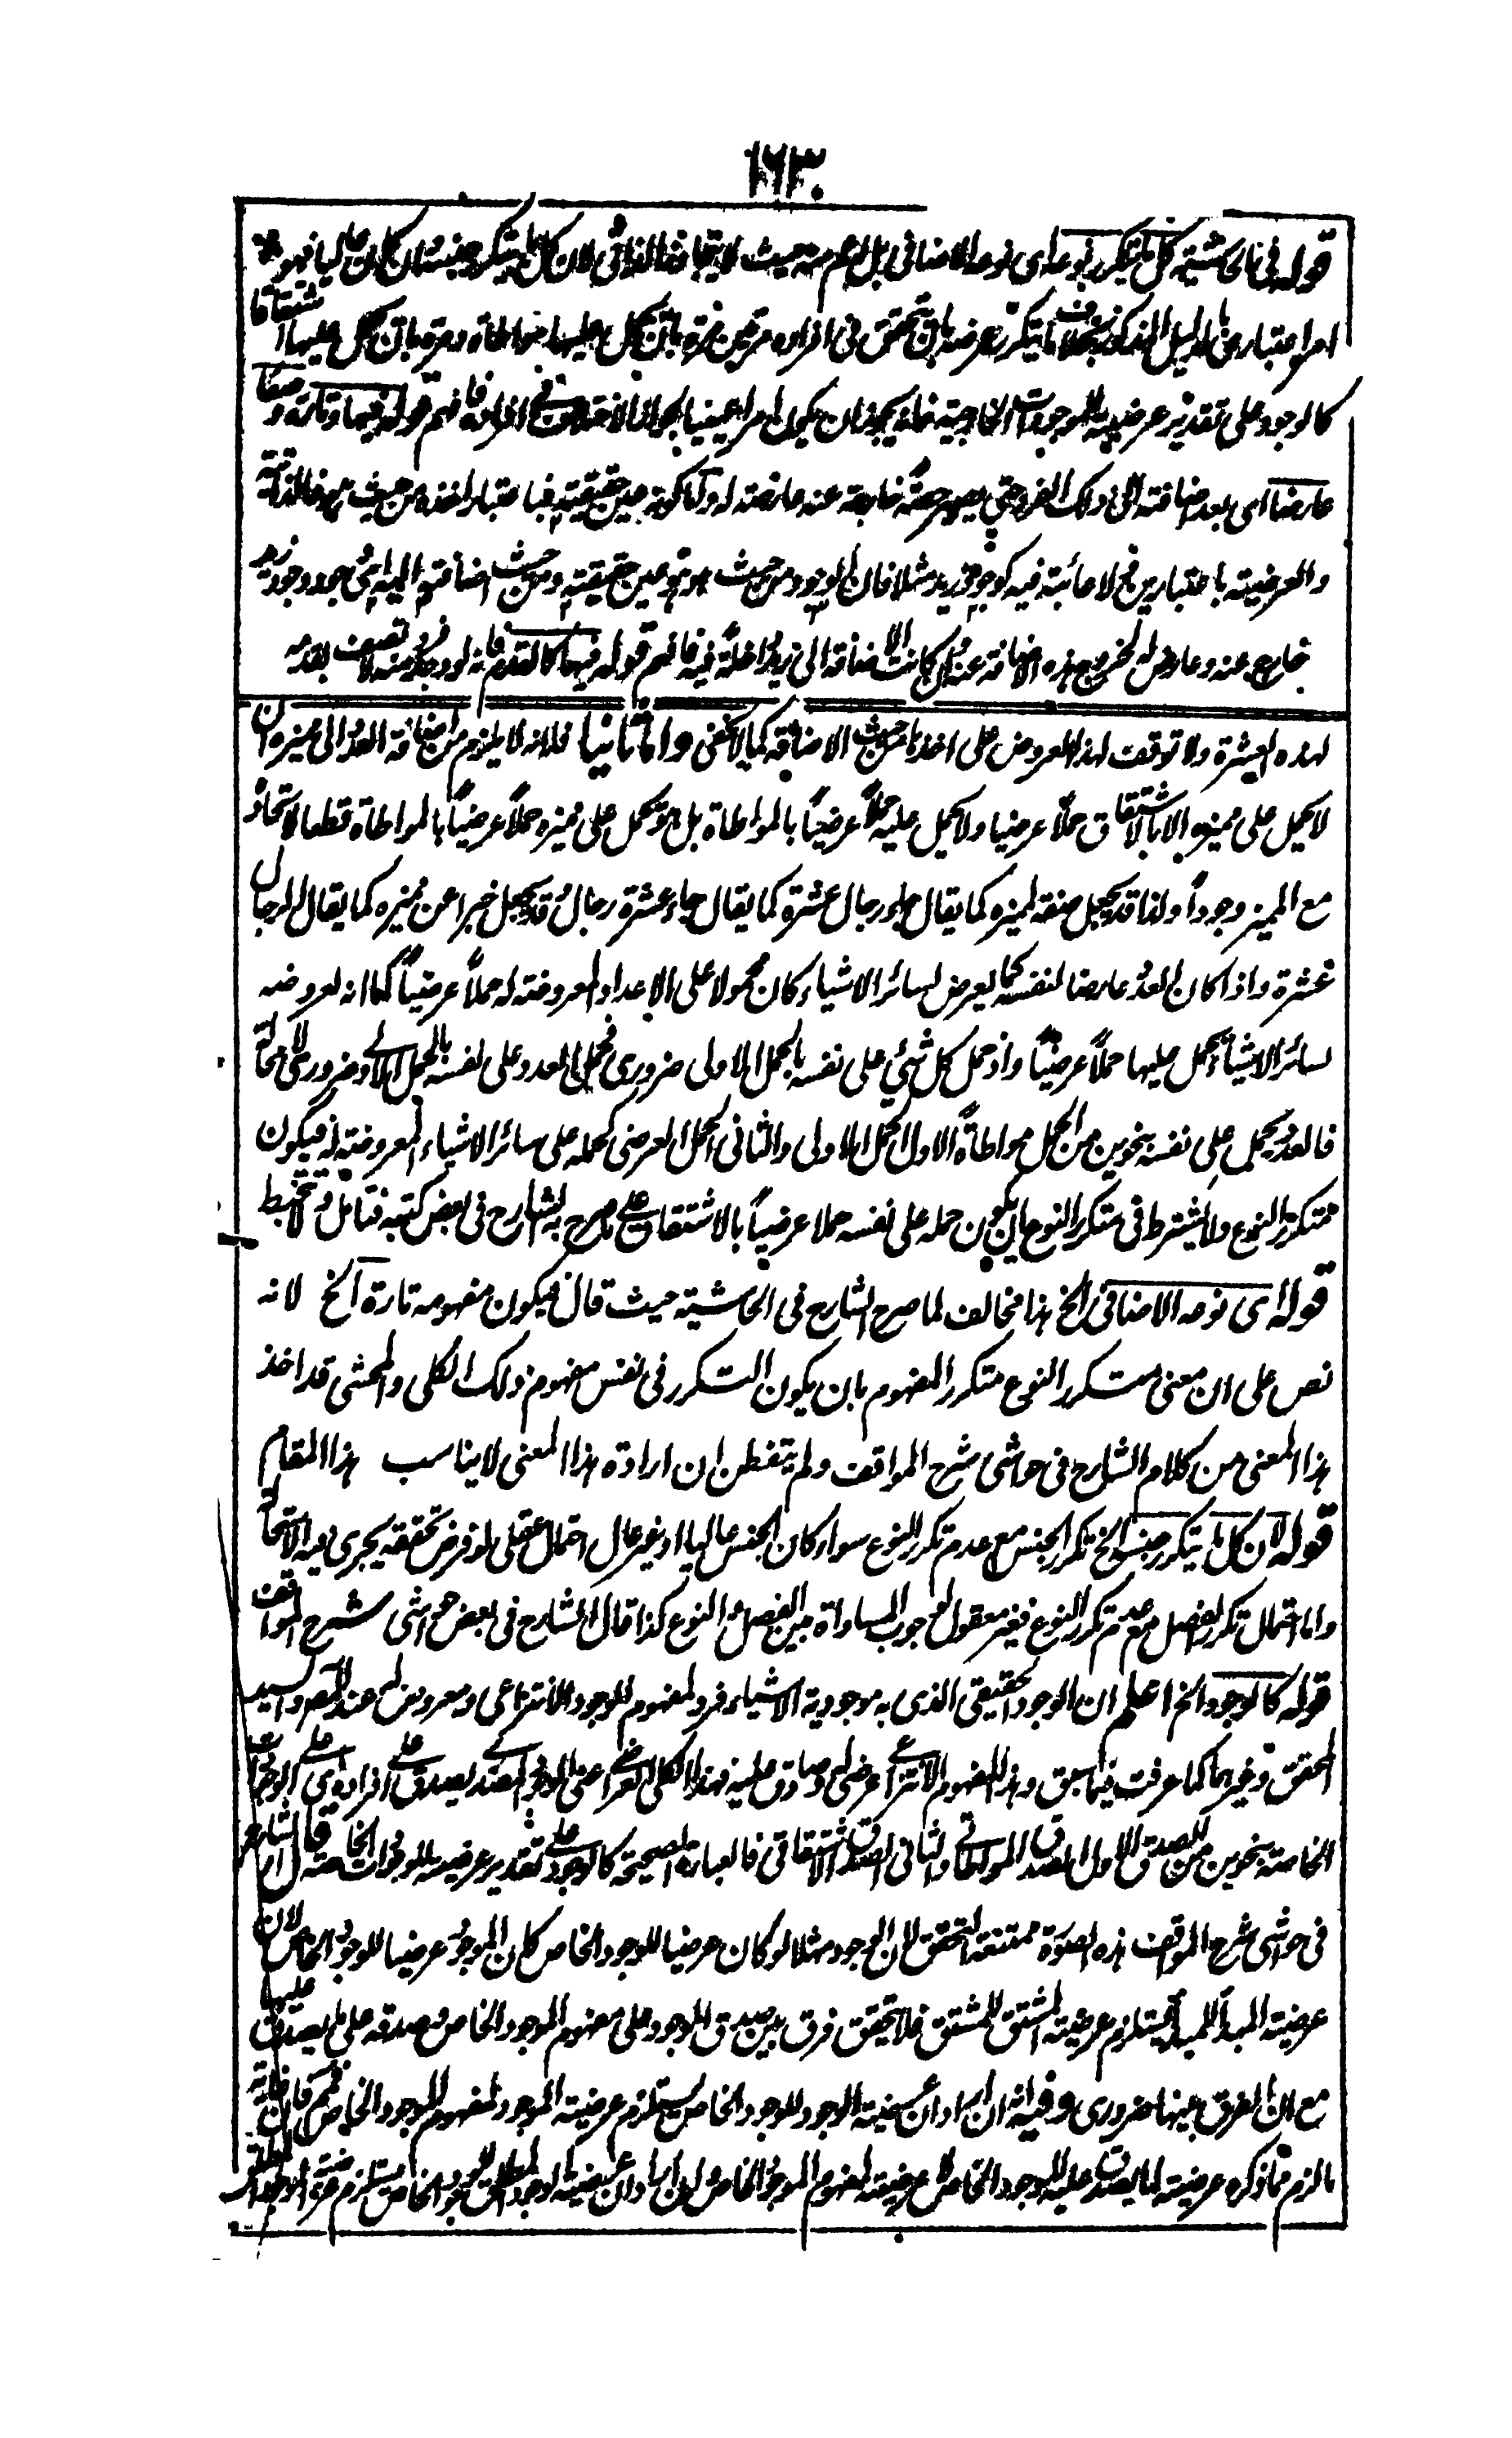 قوله فى الحاشية كل ما يتكرر نوعه اى نوعه الاضافى بل اعم منه بحيث لان كل ما يتكرر جنسه ان كان عاليا فهو
امر اعتبارى بالدليل المذكور بخلاف ما يتكرر عرضه بان يتحقق فى افراده مرتين مرة بان يحمل عليها مواطاة ومرة بان يحمل عليها اشتقاقا
كالوجود على تقدير عرضيته للموجودات الخارجية فانه يجوز ان يكون امرا عينيا فافهم قوله فيها وتارة وصفا
عارضا اى بعد اضافته الى ذلك الفرد حتى يصير حصة خارجة عنه عارضة له وأما كونه عين حقيقته فباعتبار اخذه من حيث هو فالذاتية
والعرضية باعتبارين فلا خائبة فيه كوجود زيد مثلا فان الوجود من حيث هو هو عين حقيقته ومن حيث اضافته اليه اى وجود وجود زيد
خارج عنه وعارض له لخروج هذه الاضافة عنه وان كانت الاضافة الى زيد داخلة فيه فافهم قوله فيها كالقدم فانه لو وجد فرد منه لاتصف بقدم
لهذه العشرة ولا توقف لهذا العروض على اخذها من حيث الاضافة كما لا يخفى واما ثانيا فلانه لا يلزم من اضافة العدد الى مميزه ان
لا يحمل على مميزه الا بالاشتقاق حملا عرضيا ولا يحمل عليه حملا عرضيا بالمواطاة بل هو يحمل على مميزه حملا عرضيا بالمواطاة قطعا لاتحاده
مع المميز وجودا ولذا قد يجعل صفة لمميزه كما يقال جاء رجال عشرة كما يقال جاء عشرة رجال وقد يجعل خبرا عن مميزه كما يقال الرجال
عشرة واذا كان العدد عارضا لنفسه كما يعرض لسائر الاشياء كان محمولا على الاعداد المعروضة له حملا عرضيا كما انه لعروضه
لسائر الاشياء يحمل عليها حملا عرضيا واذ حمل كل شئ على نفسه بالحمل الاولى ضرورى فحمل العدد على نفسه بالحمل الاولى ضرورى لا محالة
فالعدد يحمل على نفسه بنحوين من الحمل مواطاة الاول الحمل الاولى والثانى الحمل العرضى كحمله على سائر الاشياء المعروضة له فيكون
متكرر النوع ولا يشترط فى متكرر النوع ان يكون حمله على نفسه حملا عرضيا بالاشتقاق على ما صرح به الشارح فى بعض كتبه فتامل ولا تخبط
قوله اى نوعه الاضافى الخ هذا مخالف لما صرح الشارح فى الحاشية حيث قال فيكون مفهومه تارة الخ لانه
نص على ان معنى متكرر النوع متكرر المفهوم بان يكون التكرر فى نفس مفهوم ذلك الكلى والمحشى قد اخذ
هذا المعنى من كلام الشارح فى حواشى شرح المواقف ولم يتفطن ان ارادة هذا المعنى لا يناسب هذا المقام
قوله لان كل ما يتكرر جنسه الخ تكرر الجنس مع عدم تكرر النوع سواء كان الجنس عاليا او غير عال احتمال عقلى لو فرض تحققه يجرى فيه الاستحالة
واما احتمال تكرر الفصل مع عدم تكرر النوع فغير معقول لوجوب المساواة بين الفصل والنوع كذا قال الشارح فى بعض حواشى شرح المواقف
قوله كالوجود الخ اعلم ان الوجود الحقيقى الذى به موجودية الاشياء فرد لمفهوم الوجود الانتزاعى ومعروض له عند المص والسيد
المحقق وغيرهما كما عرفت فيما سبق وهذا المفهوم الانتزاعى عرضى له وصادق عليه فهذا الكلى العرضى اعنى الوجود المصدرى يصدق على افراده اى على الوجودات
الخاصة بنحوين من الصدق الاول الصدق المواطاتى والثانى الصدق الاشتقاقى فالعبارة الصحيحة كالوجود على تقدير عرضيته للوجودات الخاصة قال الشارح
فى حواشى شرح المواقف هذه الصورة ممتنعة التحقق لان الوجود مثلا لو كان عرضيا للوجود الخاص كان الموجود عرضيا للموجود الخاص لان
عرضية المبدأ للمبدأ يستلزم عرضية المشتق للمشتق فلا يتحقق فرق بين صدق الموجود على مفهوم الموجود الخاص وصدقه على ما يصدق عليها
مع ان الفرق بينهما ضرورى وفيه انه ان اراد ان عرضية الوجود للوجود الخاص يستلزم عرضية الموجود لمفهوم الموجود الخاص فمم فان غاية
ما لزم مما ذكره عرضيته لما يصدق عليه الموجود الخاص لا عرضيته لمفهوم الموجود الخاص وان اراد ان عرضية الوجود المطلق للوجود الخاص يستلزم عرضية الموجود